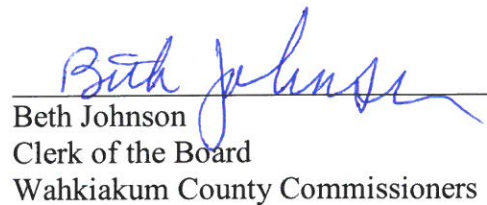 Beth Johnson
Beth Johnson
Clerk of the Board
Wahkiakum County Commissioners